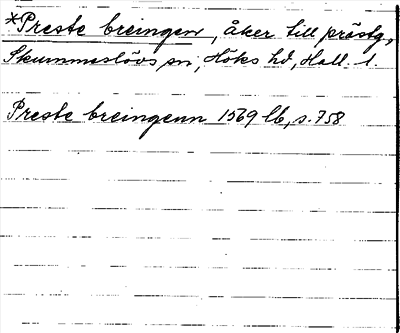 *Preste breingen, åker till prästg,
Skummeslövs sn, Höks hd, Hall. l.
Preste breingenn 1569 lb, s. 758